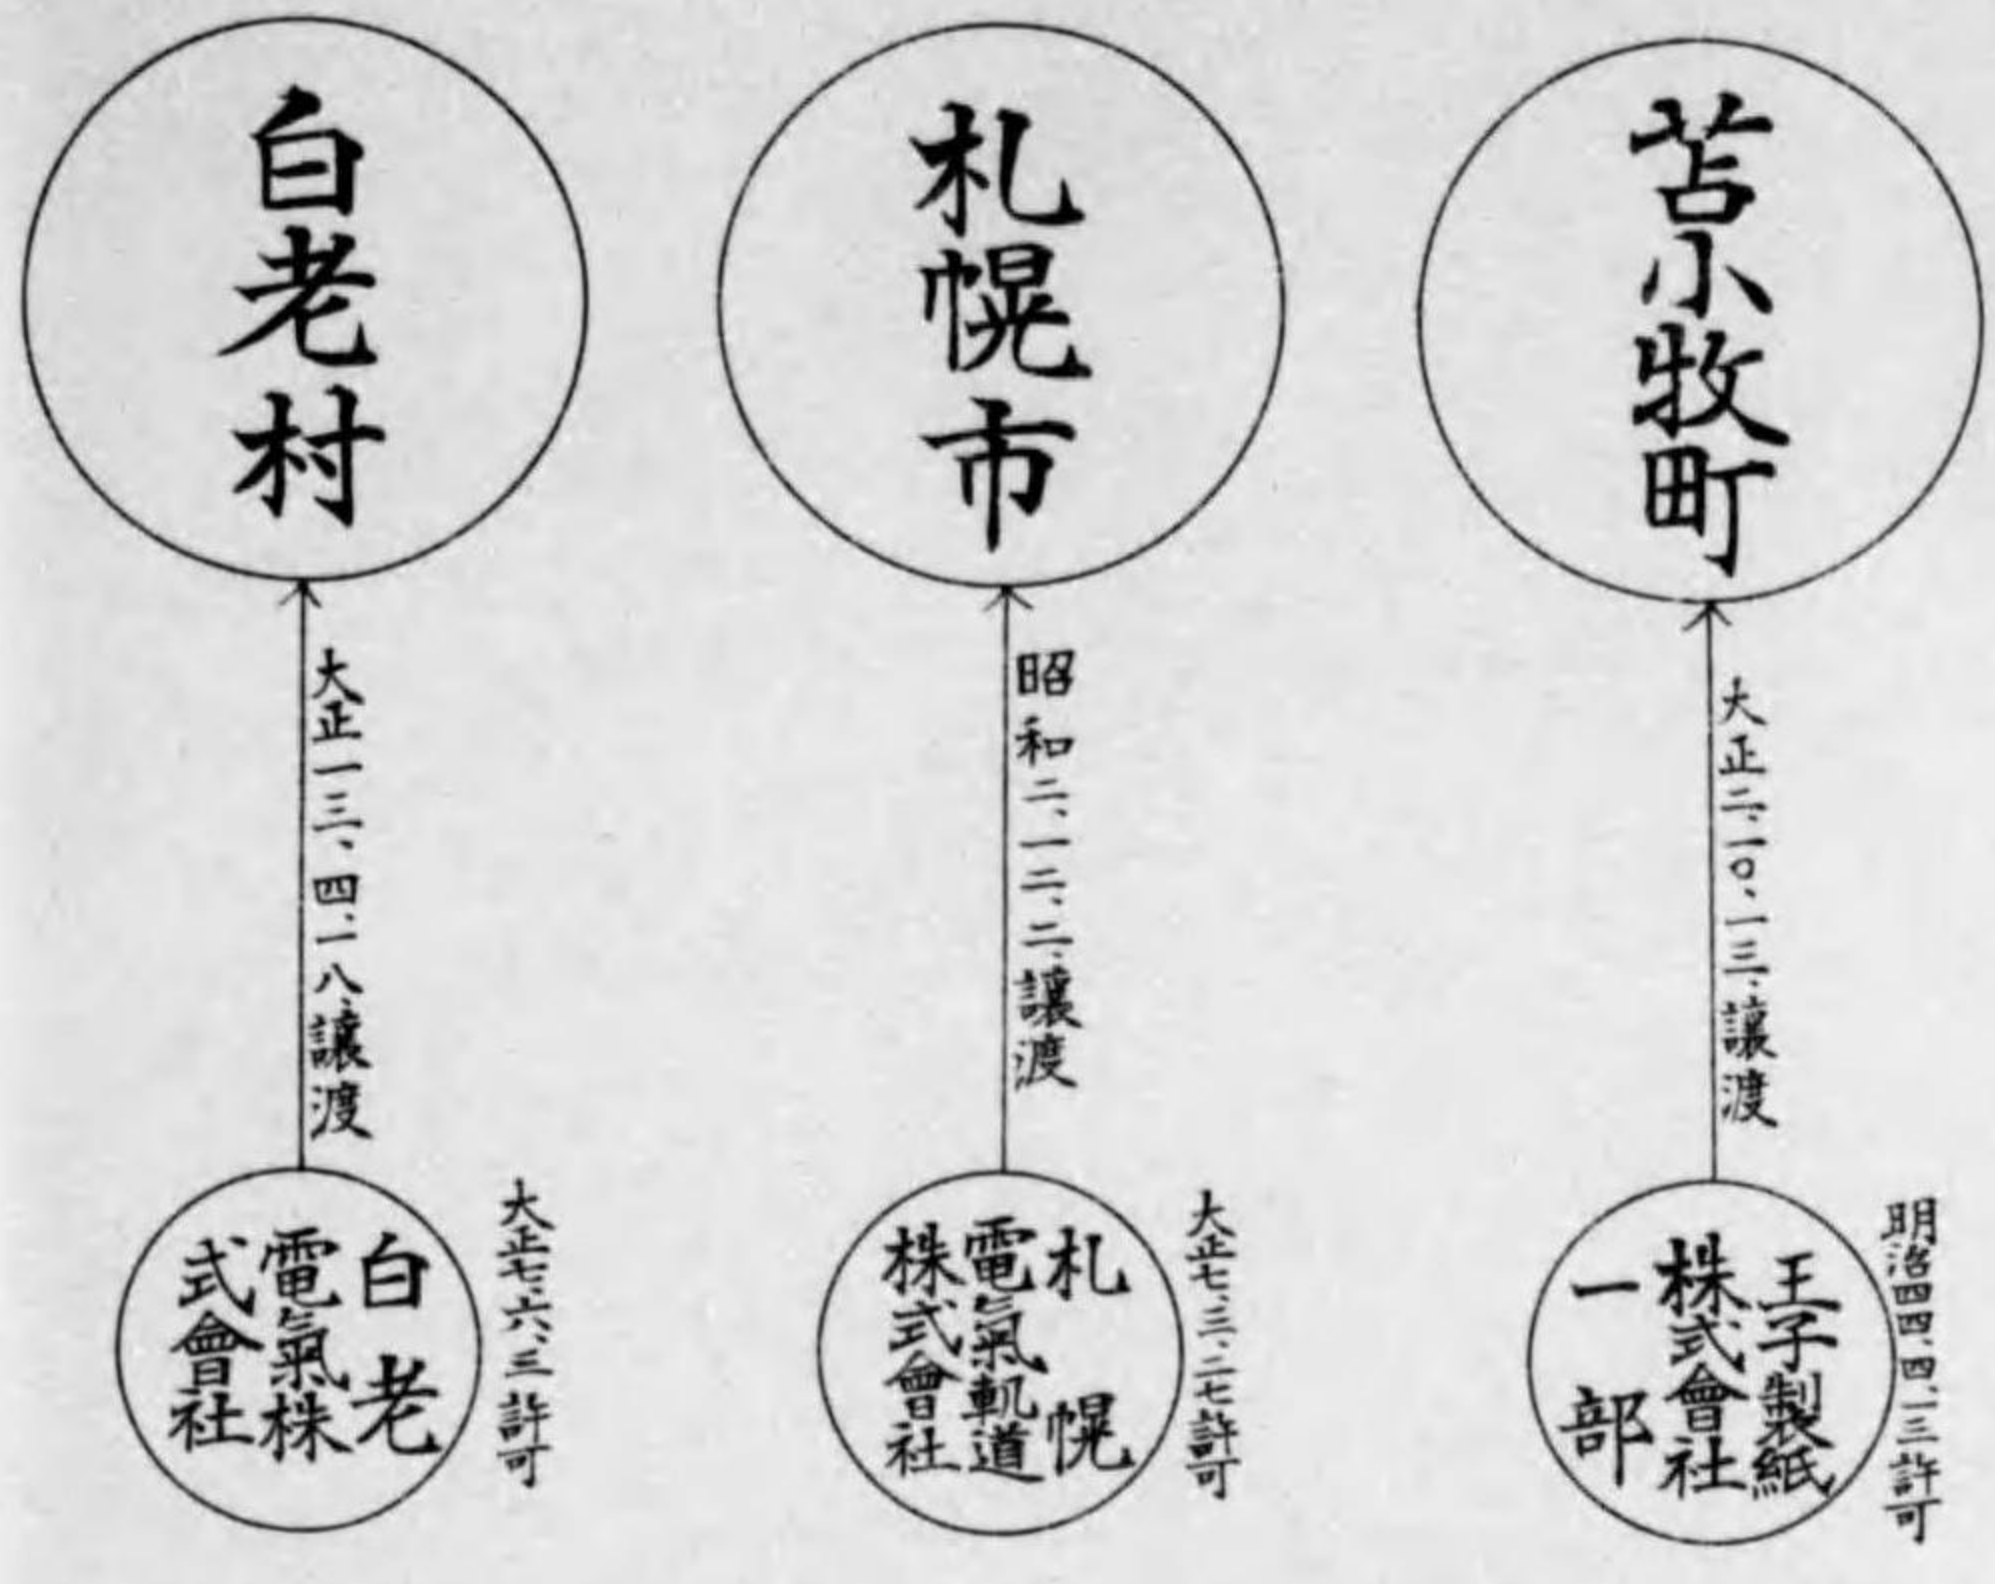 苫小牧町
大正二、一〇、一三、讓渡
明治四四、四、一三許可
王子製紙
株式會社
一部
札幌市
昭和二、一二、二、讓渡
大正七、三、二七許可
札幌
電氣軌道
株式會社
白老村
大正一三、四、一八、讓渡
大正七、六、三許可
白老
電氣株
式會社